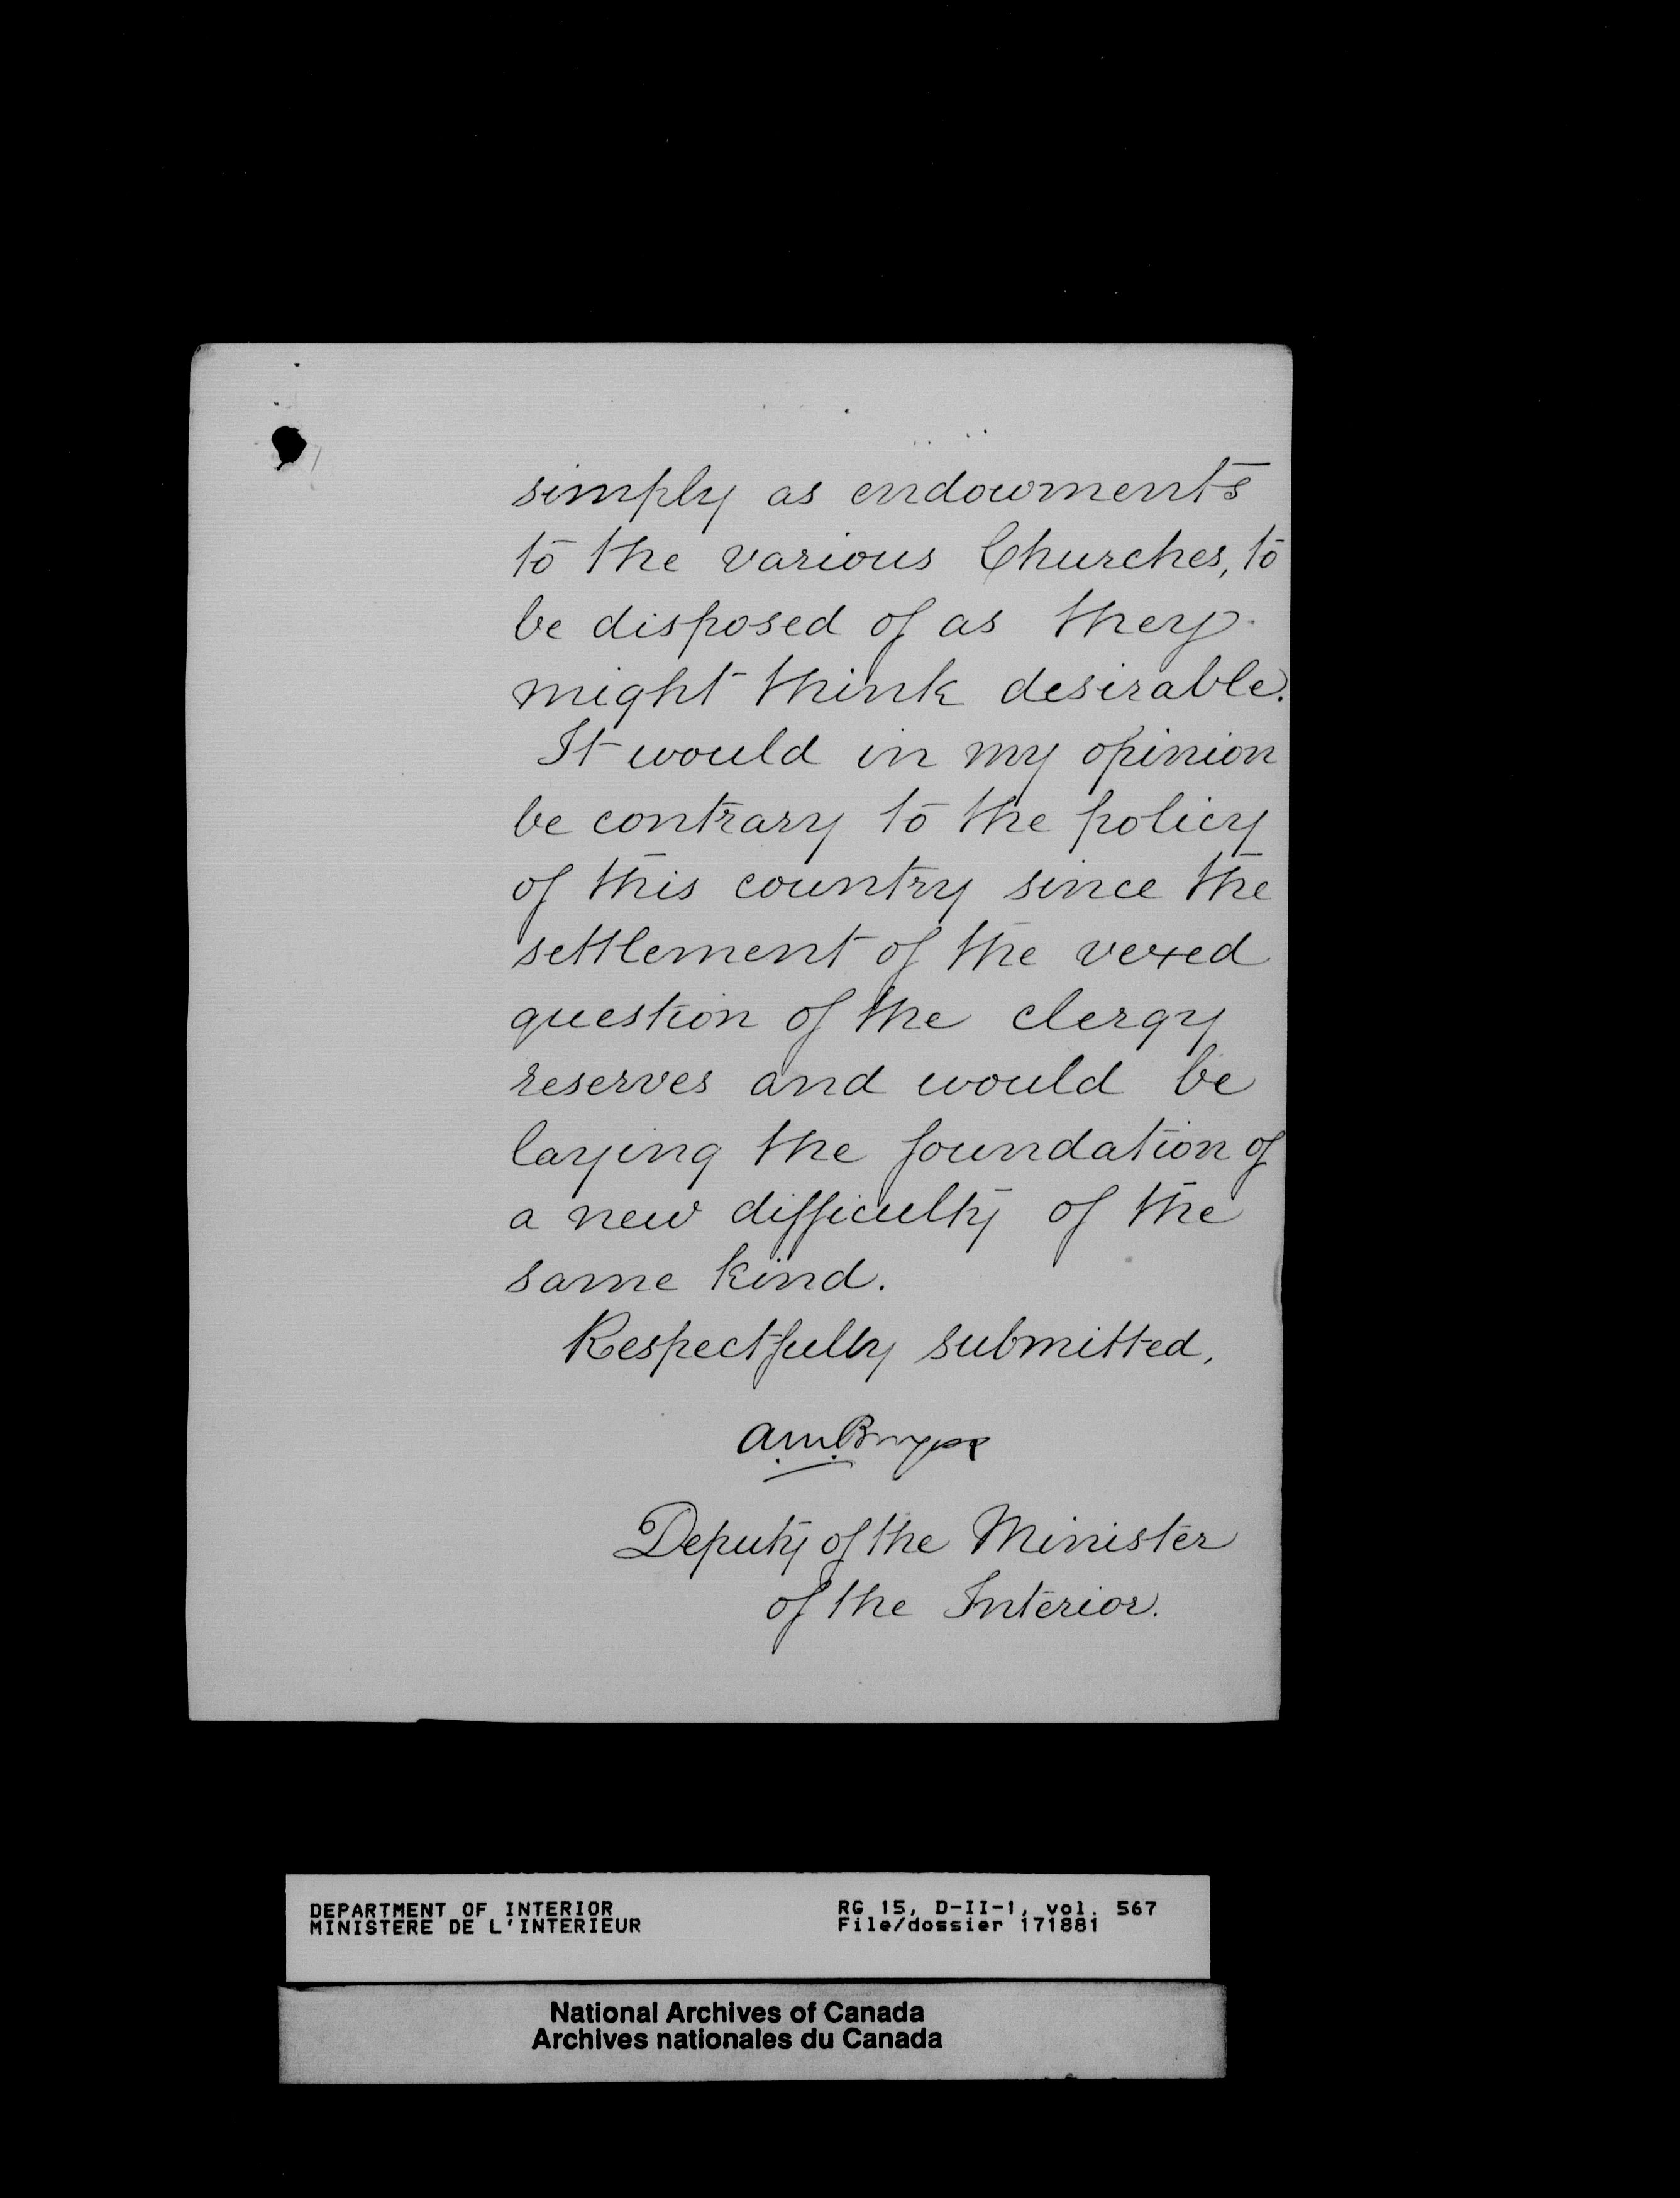 simply as endowments
to the various Churches, to
be disposed of as they
might think desirable.
It would in my opinion
be contrary to the policy
of this country since the
settlement of the vexed
question of the clergy
reserves and would be
laying the foundation of
a new difficulty of the
same kind.
Respectfully submitted,
A.M. Burgess
Deputy of the Minister
of the Interior.
DEPARTMENT OF INTERIOR
MINISTERE DE L'INTERIEUR
RG 15, D-II-1, vol. 567
File/dossier 171881
National Archives of Canada
Archives nationales du Canada